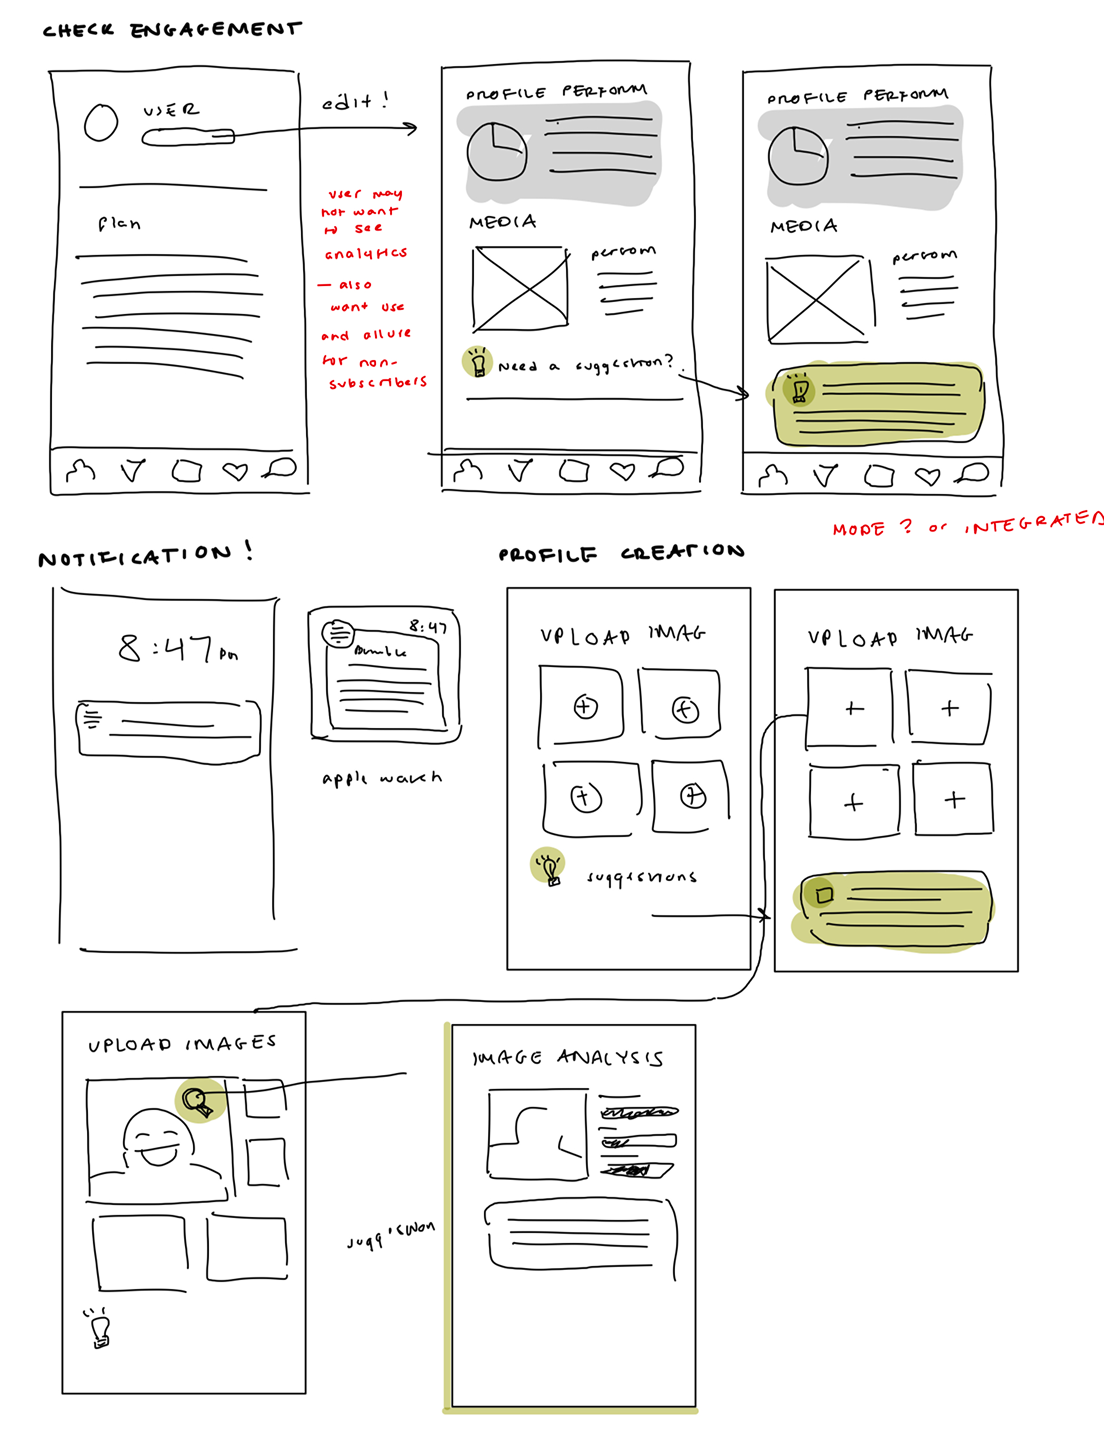 CHECK ENGAGEMENT
USER
Plan
edit!
user may
not want
to see
analytics
– also
want use
and allure
for non-
subscribers
PROFILE PERFORM
MEDIA
perform
Need a suggestion?
PROFILE PERFORM
MEDIA
perform
MODE ? or INTEGRATED
NOTIFICATION !
8:47 pm
8:47
Bumble
apple watch
PROFILE CREATION
UPLOAD IMAG
suggestions
UPLOAD IMAG
UPLOAD IMAGES
suggestion
IMAGE ANALYSIS